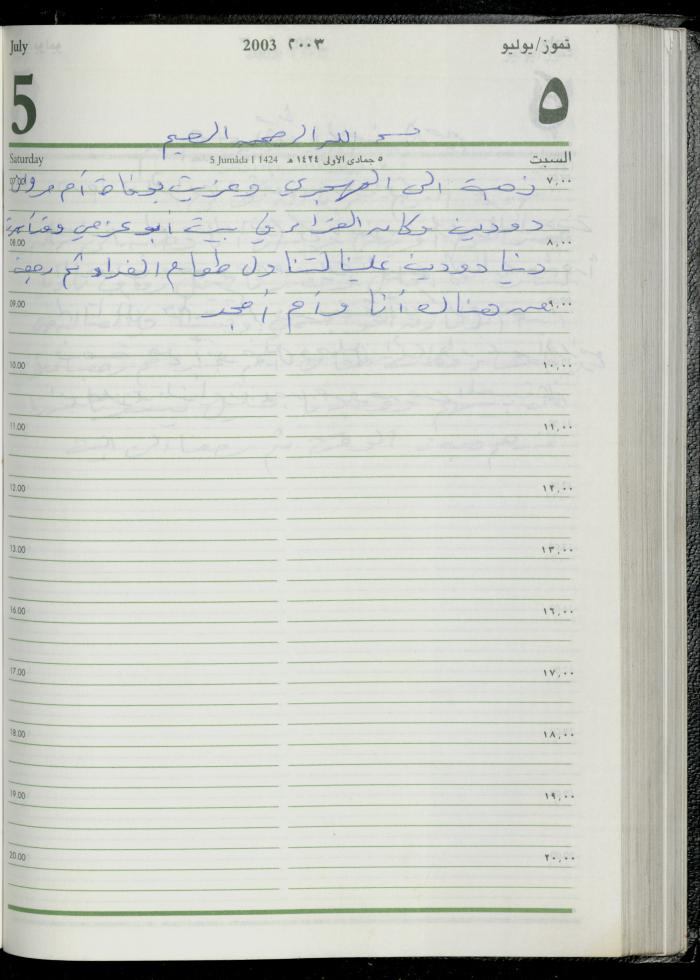 July 2003 ٢٠٠٣ تموز/يوليو
5 ٥
بسم الله الرحمن الرحيم
Saturday 5 Jumâda I 1424 ٥ جمادى الأولى ١٤٢٤ هـ السبت
٧,٠٠ ذهبة الى الهجري وعزيت بوفاة أم مروان
دودين وكان العزاء في بيت أبو عزمي وقد
08.00 ٨,٠٠
دنيا دودين علينا لتناول طعام الغداء ثم رجعة
09.00 ٩,٠٠
من هناك أنا وأم أمجد
10.00 ١٠,٠٠
11.00 ١١,٠٠
12.00 ١٢,٠٠
13.00 ١٣,٠٠
16.00 ١٦,٠٠
17.00 ١٧,٠٠
18.00 ١٨,٠٠
19.00 ١٩,٠٠
20.00 ٢٠,٠٠